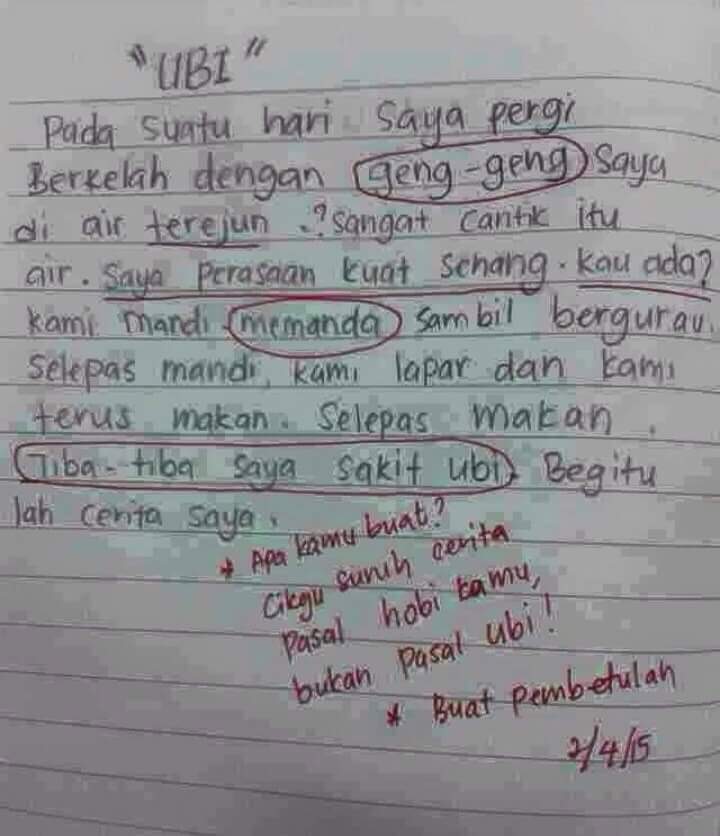 "UBI"
Pada suatu hari saya pergi
Berkelah dengan geng-geng saya
di air terejun .? sangat cantik itu
air. Saya perasaan kuat senang. kau ada?
kami mandi memanda sambil bergurau.
Selepas mandi, kami lapar dan kami
terus makan. Selepas makan.
Tiba-tiba saya sakit ubi. Begitu
lah cerita saya.
* Apa kamu buat?
Cikgu suruh cerita
pasal hobi kamu,
bukan pasal ubi!
* Buat pembetulah
2/4/15